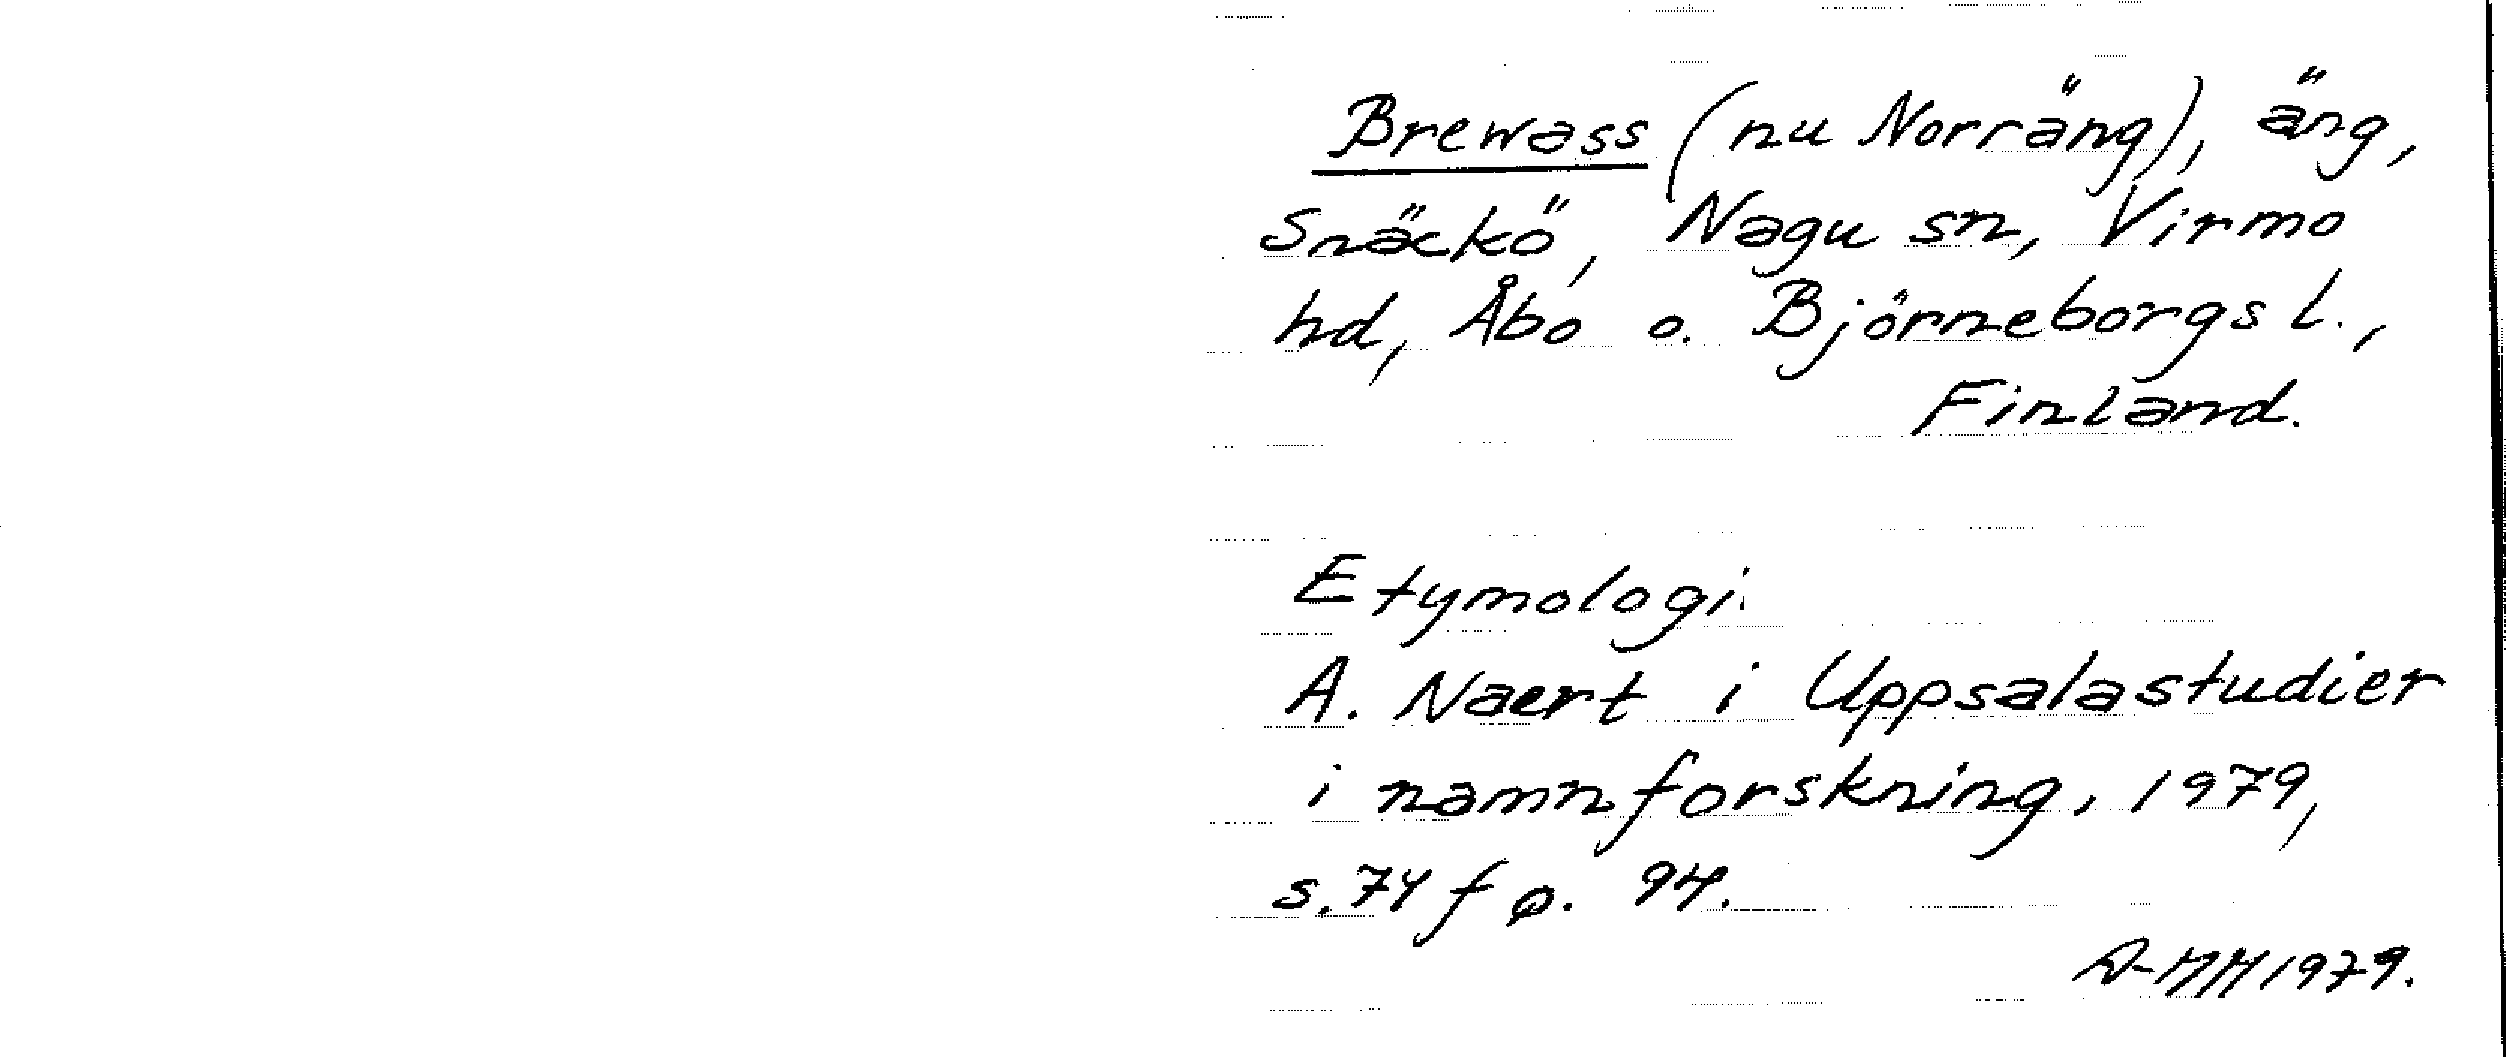 Brewass (nu Norräng), äng,
Snäckö, Nagu sn, Virmo
hd, Åbo o. Björneborgs l.,
Finland.
Etymologi.
A. Naert i Uppsalastudier
i namnforskning, 1979,
s. 74 f o. 94.
1979.